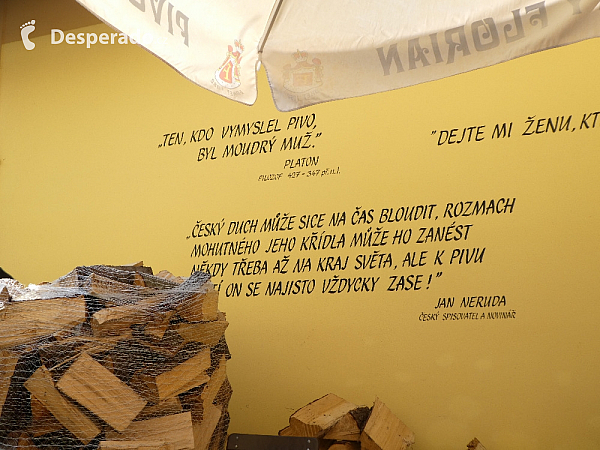 Desperad
PIVO
Y FLORIAN
„TEN, KDO VYMYSLEL PIVO,
BYL MOUDRÝ MUŽ.”
PLATON
FILOZOF 427 - 347 př.n.l.
"DEJTE MI ŽENU, KT
„ČESKÝ DUCH MŮŽE SICE NA ČAS BLOUDIT, ROZMACH
MOHUTNÉHO JEHO KŘÍDLA MŮŽE HO ZANÉST
NĚKDY TŘEBA AŽ NA KRAJ SVĚTA, ALE K PIVU
Í ON SE NAJISTO VŽDYCKY ZASE!”
JAN NERUDA
ČESKÝ SPISOVATEL A NOVINÁŘ